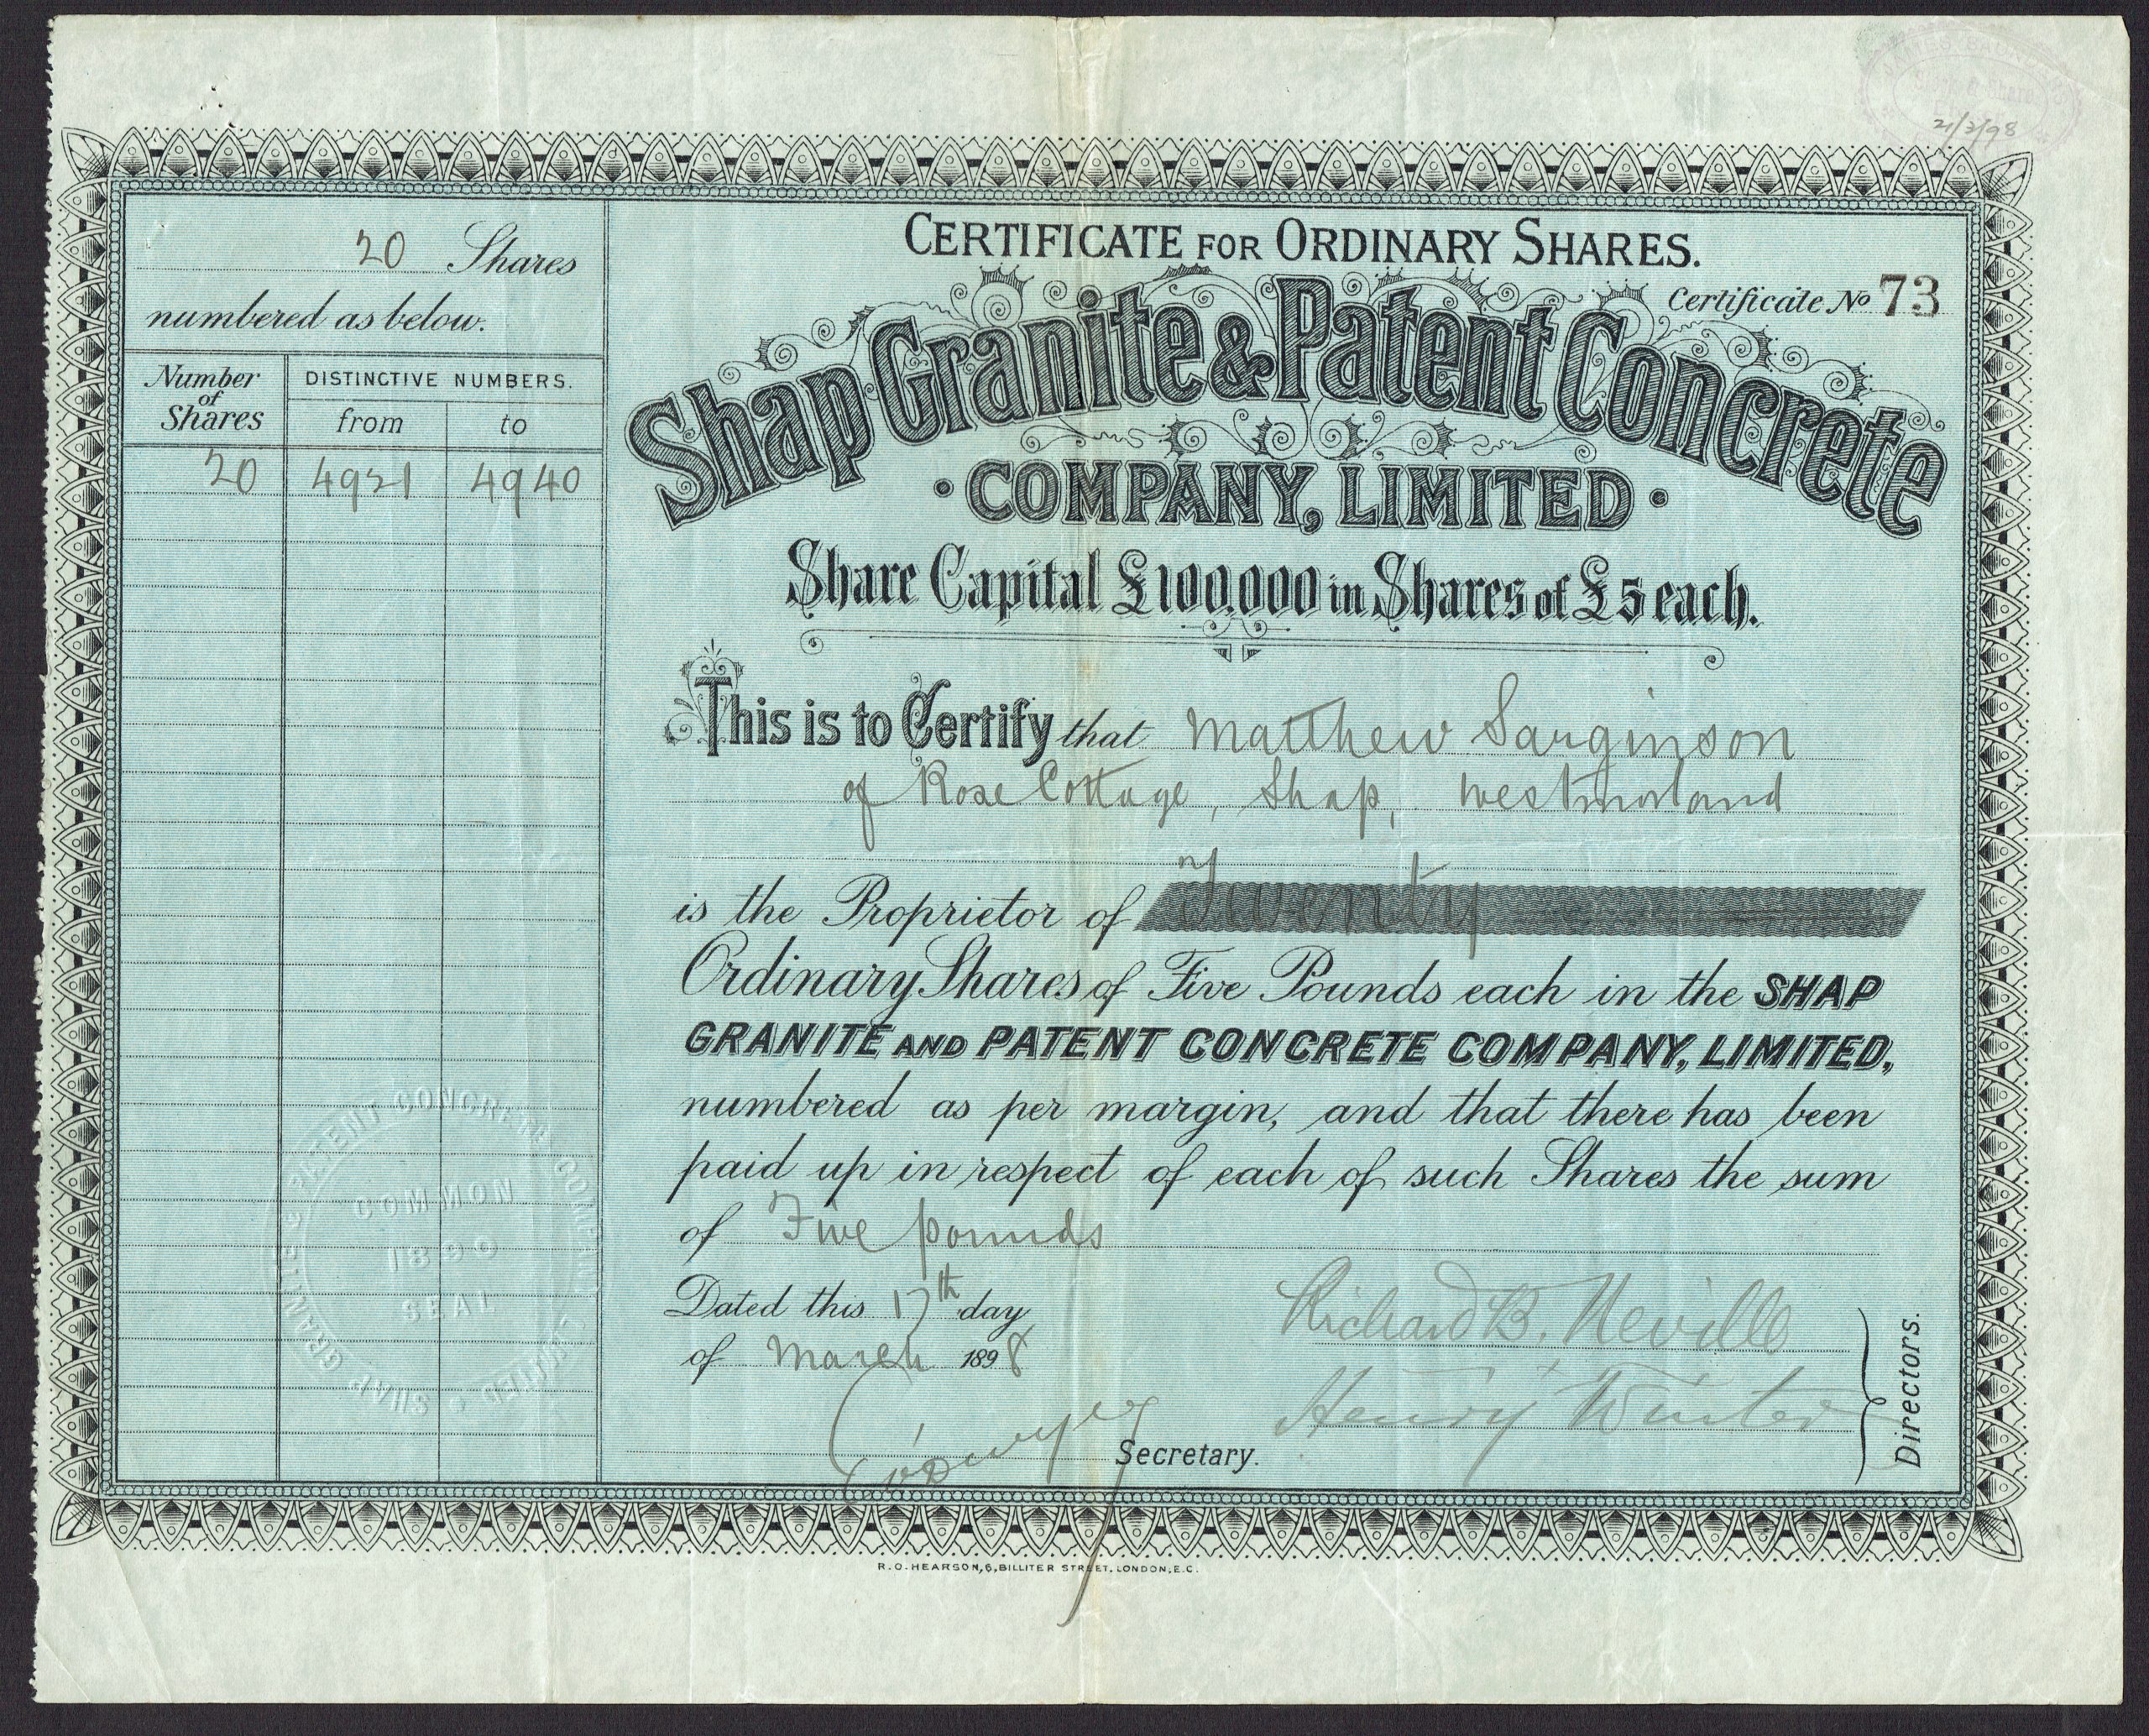 JAMES
Stock & Share
21/3/98
20 Shares
numbered as below.
Number of Shares
DISTINCTIVE NUMBERS.
from to
20 4921 4940
CERTIFICATE FOR ORDINARY SHARES.
Certificate No 73
Shap Granite & Patent Concrete
COMPANY, LIMITED
Share Capital £100,000 in Shares of £5 each.
This is to Certify that Matthew Sarginson
of Rose Cottage, Shap, Westmorland
is the Proprietor of Twenty
Ordinary Shares of Five Pounds each in the SHAP
GRANITE AND PATENT CONCRETE COMPANY, LIMITED,
numbered as per margin, and that there has been
paid up in respect of each of such Shares the sum
of Five pounds
Dated this 17th day
of March 1898
Richard B. Neville
Henry Winter
Directors.
Secretary.
SHAP GRANITE & PATENT CONCRETE COMPANY LIMITED
COMMON
SEAL
R.O. HEARSON, 6, BILLITER STREET, LONDON, E.C.